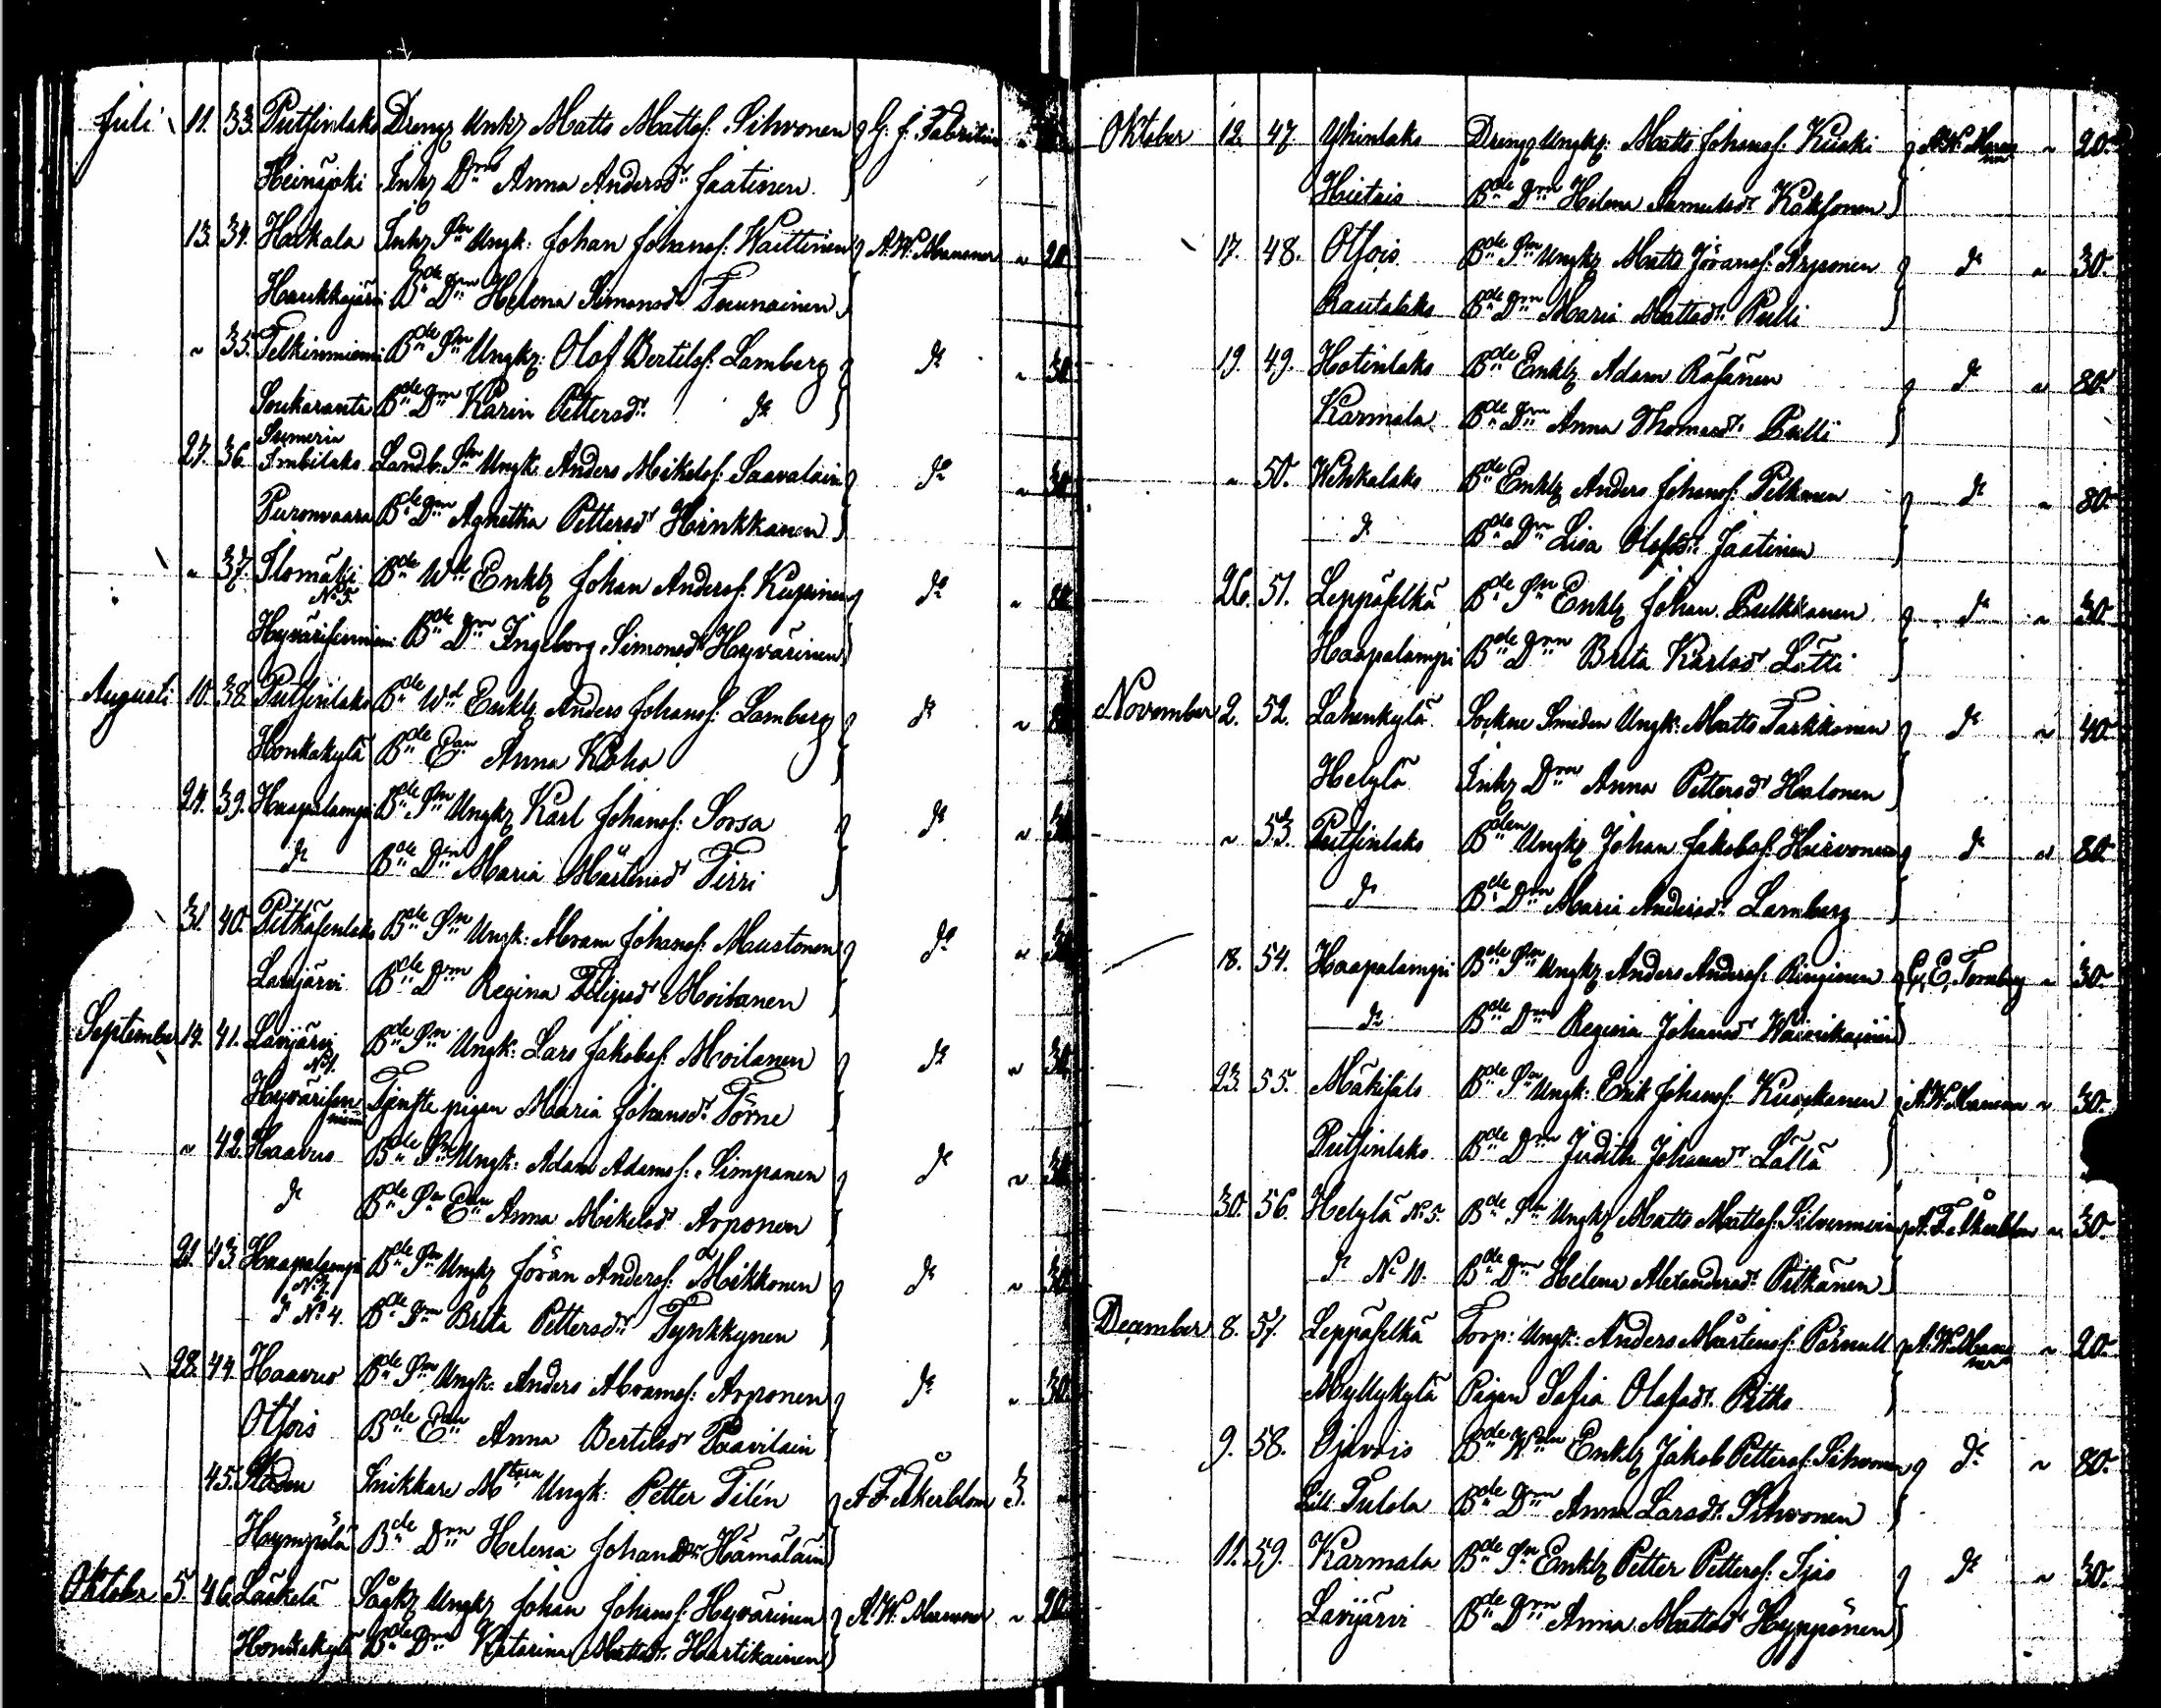 Juli 11. 33. Putsinlaks Dreng Unkz Matts Mattss: Sihvonen G. J. Fabritius
Heinäjoki Inhz Drn Anna Andersdr Jaatinen
13. 34. Haikala Inhz Sn Ungk: Johan Johanss: Waittinen A. W. Mansner " 20
Haukkajärvi Bde Drn Helena Simonsdr Tounainen
" 35. Telkinniemi Bde Sn Ungkz: Olof Bertilss: Lamberg do " 30
Soukaranta Bde Drn Karin Pettersdr do
27. 36. Sumeria Imbilaks Landb. Sn Ungk: Anders Mikelss: Saavalain do " 30
Puronvaara Bde Drn Agnetha Pettersdr Hinkkanen
" 37. Ilomäki No 5. Bde Wd Enklz Johan Anderss: Kupinen do " 80
Hyvärisenniemi Bde Drn Ingeborg Simonsdr Hyvärinen
Augusti 10. 38. Putsinlaks Bde Wd Enklz Anders Johanss: Lamberg do " 80
Honkakylä Bde Ean Anna Koho
24. 39. Haapalampi Bde Sn Ungkz Karl Johanss: Sorsa do " 30
do Bde Drn Maria Mårtensdr Tirri
31. 40. Pitkäsenlaks Bde Sn Ungk: Abram Johanss: Mustonen do " 30
Lavijärvi Bde Drn Regina Filipsdr Moilanen
September 14. 41. Lavijärvi No 1. Bde Sn Ungk: Lars Jakobss: Moilanen do " 30
Hyvärisenniemi Tjenste pigan Maria Johansdr Törne
" 42. Haavus Bde Sn Ungk: Adam Adamss: Simpanen do " 30
do Bde Sn Ean Anna Mikelsdr Arponen
21. 43. Haapalampi No 7. Bde Sn Ungkz Jöran Anderss: Mikkonen do " 30
do No 4. Bde Drn Brita Pettersdr Tynkkynen
28. 44. Haavus Bde Sn Ungk: Anders Abramss: Arponen do " 30
Otsois Bde Ean Anna Bertilsdr Paavilain
45. Staden Snikkare Mstarn Ungk: Petter Tilén A F Åkerblom 3. "
Hympölä Bde Drn Helena Johansdr Hämäläin
Oktober 5. 46. Läskelä Sågkz Ungkz Johan Johanss: Hyvärinen A. W. Mansner " 20
Honkakylä Bde Drn Katarina Mattsdr Hartikainen
Oktober 12. 47. Uhinlaks Dreng Ungkz: Matts Johanss: Kuski A. W. Mansner " 20
Hietais Bde Drn Helena Samuelsdr Kaksonen
17. 48. Otsois Bde Sn Ungkz Matts Jöranss: Arponen do " 30.
Rautalaks Bde Drn Maria Mattsdr Pulli
19. 49. Hotinlaks Bde Enklz Adam Räsänen do " 80.
Karmala Bde Drn Anna Thomasdr Pulli
" 50. Wehkalaks Bde Enklz Anders Johanss: Pelkonen do " 80.
do Bde Drn Lisa Olofsdr Jaatinen
26. 51. Leppäselkä Bde Sn Enklz Johan Pulkkanen do " 30.
Haapalampi Bde Drn Brita Karlsdr Lätti
November 2. 52. Lahenkylä Sockne Smeden Ungk: Matts Tarkkonen do " 40
Helylä Inhz Drn Anna Pettersdr Halonen
" 53. Putsinlaks Bden Ungkz Johan Jakobss: Hirvonen do " 80
do Bde Drn Maria Andersdr Lamberg
18. 54. Haapalampi Bde Sn Ungkz Anders Anderss: Ringinen G. E. Tornberg " 30
do Bde Drn Regina Johansdr Wäisikäinen
23. 55. Mäkisals Bde Sn Ungk: Erik Johanss: Kuoskanen A. W. Mansner " 30.
Putsinlaks Bde Drn Judith Johansdr Lällä
30. 56. Helylä No 5. Bde Sn Ungkz Matts Mattss: Silvennoin A. F. Åkerblom " 30.
do No 10. Bde Drn Helena Alexandersdr Pitkänen
December 8. 57. Leppäselkä Torp: Ungk: Anders Mårtenss: Pärnull A. W. Mansner " 20
Myllykylä Pigan Sofia Olofsdr Pitko
9. 58. Ojavois Bde Enklz Jakob Petterss: Sihvonen do " 80.
Lill Tulola Bde Drn Anna Larsdr Sihvonen
11. 59. Karmala Bde Sn Enklz Petter Petterss: Ijäs do " 30.
Lavijärvi Bde Drn Anna Mattsdr Hyppönen